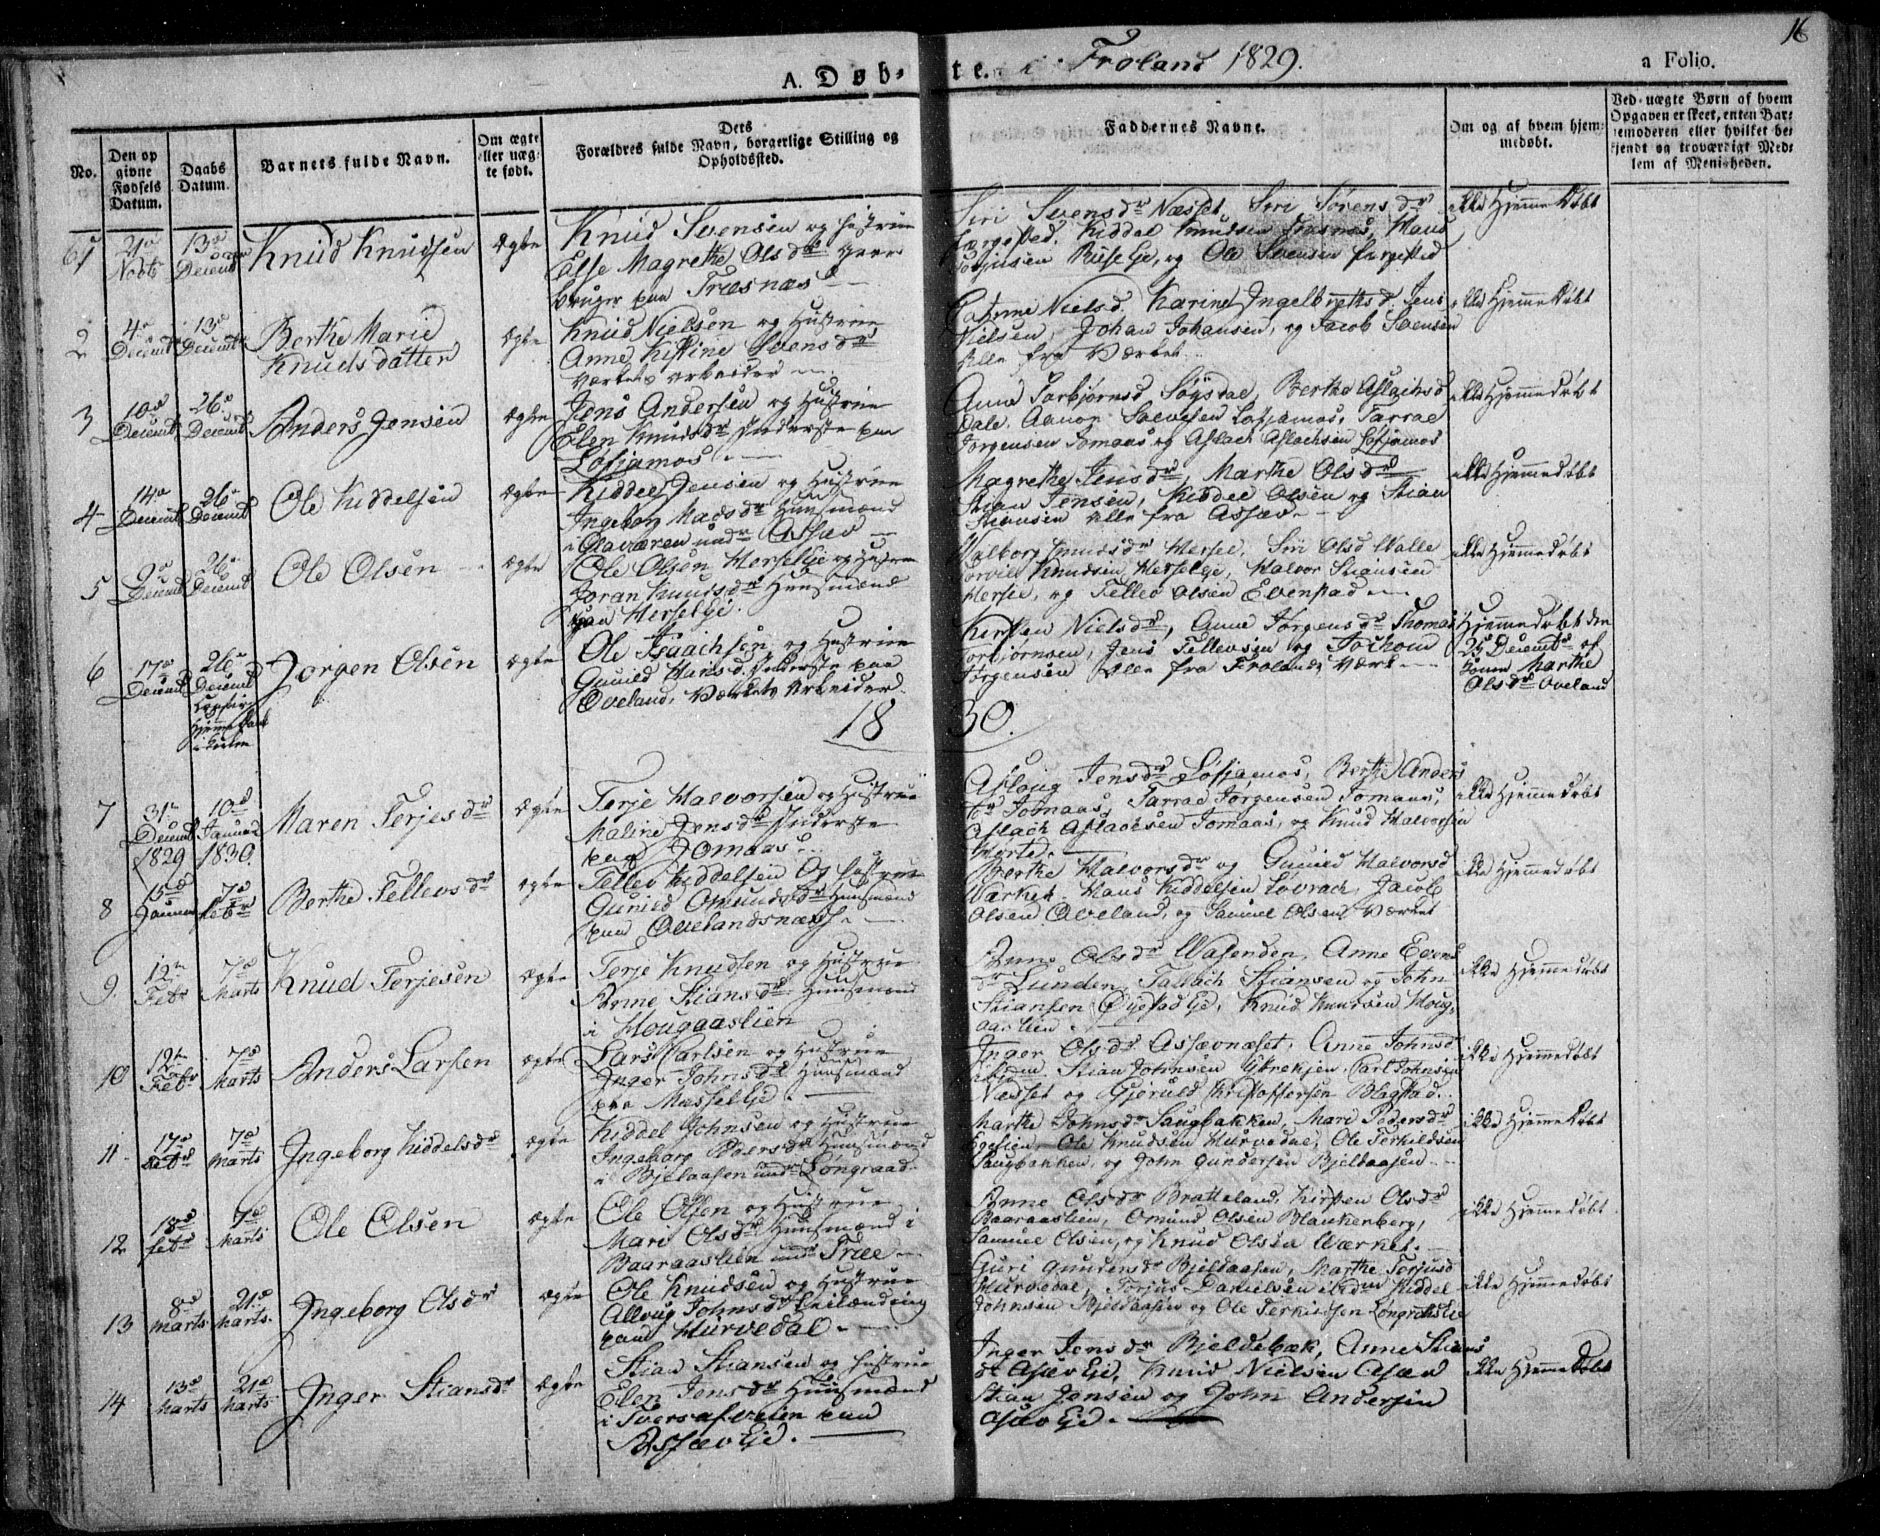 A. Døbte. i Froland 1829.
16
a Folio.
No.
Den op
givne
Fødsels
Datum.
Daabs
Datum.
Barnets fulde Navn.
Om ægte
eller uæg-
te født.
Dets
Forældres fulde Navn, borgerlige Stilling og
Opholdssted.
Faddernes Navne.
Om og af hvem hjem-
medøbt.
Ved uægte Børn af hvem
Opgaven er skeet, enten Bar-
nemoderen eller hvilket be-
kjendt og troværdigt Med-
lem af Menigheden.
13de
Novbr
Decembr
Knud Knudsen
Ægte
Knud Svensen og Hustrue
Else Magrethe Olsdr
bruger paa Træsnæs
Siri Svensdr Næsset, Siri Sørensdr
Kiddel Knudsen
og Ole Svensen
ikke Hjemmedøbt
2
4de
Decembr
13de
Decembr
Berthe Marie
Knudsdatter
Ægte
Knud Nielsen og Hustrue
Anne Kistine Svensdr
Værkets Arbeider
Nielsd, Karine Ingelbrethsd, Jens
Nielsen, Johan Johansen, og Jacob Svensen
Alle fra Værket
ikke Hjemmedøbt
3
10de
Decembr
26de
Decembr
Anders Jensen
Ægte
Jens Andersen og Hustrue
Elen Knudsdr Inderste paa
Løfsjamos
Anne Torbjørnsd Løgsdal, Berthe Aslachsd
Dale, Løfsjamos, Tarrae
Jørgensen Jomaas og Aslach Aslachsen Løfsjamos
ikke Hjemmedøbt
4
14de
Decembr
26de
Decembr
Ole Kiddelsen
Ægte
Kiddel Jensen og Hustrue
Ingeborg Madsdr Huusmænd
i Glaværen undr Assæv
Magrethe Jensdr, Marthe Olsdr
Stian Jensen, Kiddel Olsen og Stian
Stiansen Alle fra Assæv
ikke Hjemmedøbt
5
Decembr
26de
Decembr
Ole Olsen
Ægte
Ole Olsen Herselje og Hustrue
Joran Knudsdr Huusmænd
paa Herselje.
Walborg Knudsdr Hersel, Siri Olsd Walle
Knudsen Herselje, Halvor Stiansen
Hersel, og Tellev Olsen Evenstad
ikke Hjemmedøbt
6
17de
Decembr
26de
Decembr
i Kirken
Jørgen Olsen
Ægte
Ole Isaachsen og Hustrue
Gunild Hansd. Inderste paa
Oveland, Værkets Arbeider
Kirsten Nielsdr, Anne Jørgensdr Thomas
Torbjørnsen, Jens Tellevsen og Jochom
Jørgensen Alle fra Frolands Værk
Hjemmedøbt den
25de Decembr af
Konen Marthe
Olsdr Oveland
1830.
7
31te
Decembr
1829
10de
Januar
1830.
Maren Terjesdr
Ægte
Terje Halvorsen og Hustrue
Maline Jensdr Inderste
paa Jomaas
Aslaug Jensdr Løfsjamos, Berthe Anders
dr Jomaas, Tarrae Jørgensen Jomaas,
Aslach Aslachsen Jomaas, og Knud Halvorsen
ikke Hjemmedøbt
8
15de
Januar
7de
Febr
Berthe Tellevsdr
Ægte
Tellev Kiddelsen Og Hustrue
Gunild Omundsdr Huusmænd
paa Ovelandsnæss
Berthe Halvorsdr og Gunild Halvorsd
Værket, Hans Kiddelsen Løvrach, Jacob
Olsen Oveland, og Samuel Olsen Værket
ikke Hjemmedøbt
9.
12te
Febr
7de
Marts
Knud Terjesen
Ægte
Terje Knudsen og Hustrue
Anne Stiansdr Huusmænd
i Hougaaslien
Anne Olsdr Wasenden, Anne Evens
dr Lunden, Tallach Stiansen og John
Stiansen Øyestad Eje, Knud Knudsen Houg-
aaslien
ikke Hjemmedøbt
10
12te
Febr
7de
Marts
Anders Larsen
ægte
Lars Carlsen og Hustrue
Inger Johnsdr Huusmænd
paa Messel Eje
Inger Olsdr Assævnæset, Anne Johnsd
Stian Johnsen Carl Johnsen
Næsset og Gjeruld Kristoffersen Blagstad.
ikke Hjemmedøbt
11
17de
Febr
7de
Marts
Ingeborg Kiddelsdr
ægte
Kiddel Johnsen og Hustrue
Ingeborg Pedersdr Huusmænd
i Bjelaasen undr Longraad
Marthe Johnsdr Saugbakken, Mari Pedersdr
Egeslien, Ole Knudsen Hurvedal, Ole Terkildsen
Saugbakken, og John Gundersen Bjellaasen
ikke Hjemmedøbt
12
18de
Febr
7de
Marts
Ole Olsen
ægte
Ole Olsen og Hustrue
Mari Olsdr Huusmænd i
Baaraaslien undr Træe
Anne Olsdr Bratteland, Kirsten Olsdr
Baaraaslien, Omund Olsen Blankenberg,
Samuel Olsen, og Knud Olsen Værket.
ikke Hjemmedøbt
13
8de
Marts
21de
Marts.
Ingeborg Olsdr
ægte
Ole Knudsen og Hustrue
Allaug Johnsdr Leilænding
paa Hurvedal
Guri Gundersdr Bjellaasen, Marthe Terjusd
Hurvedal, Terjus Danielsen ibidem Kiddel
Johnsen Bjellaasen og Ole Terkildsen Longraaslie
ikke Hjemmedøbt
14
13de
Marts
21de
Marts
Inger Stiansdr
Ægte
Stian Stiansen og Hustrue
Elen Jensdr Huusmænd
i Tversafveien paa
Assæv Eje.
Inger Jensdr Bjeldebæk, Anne Stians
dr Asæv Eje, Knud Nielsen Asæv
Stian Jensen og John Andersen
Asæv Eje.
ikke Hjemmedøbt